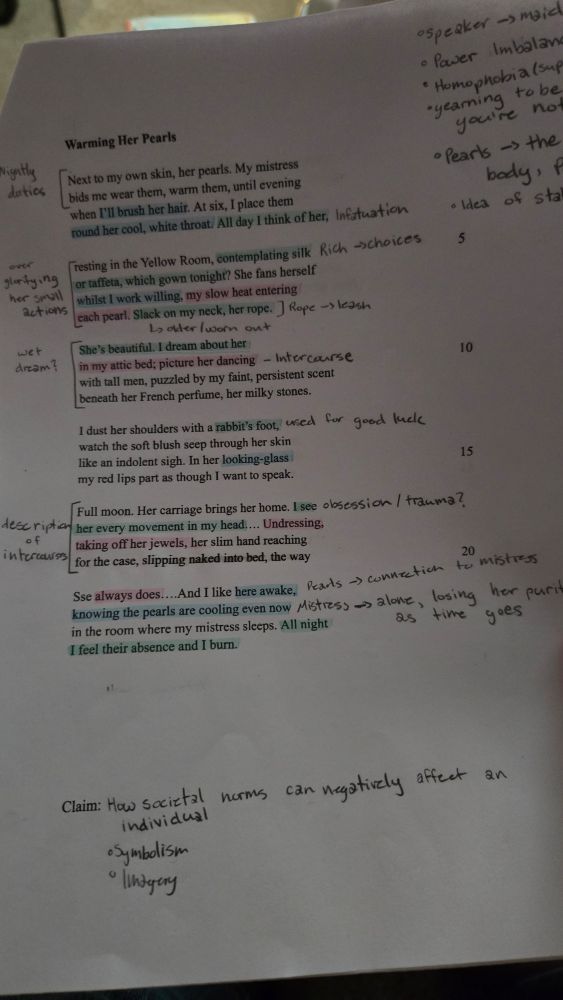 •Speaker → maid
• Power Imbalan
• Homophobia (sup
•yearning to be
you're not
• Pearls → the
body, P
• Idea of sta
Warming Her Pearls
Nightly
duties
Next to my own skin, her pearls. My mistress
bids me wear them, warm them, until evening
when I'll brush her hair. At six, I place them
round her cool, white throat. All day I think of her, Infatuation
5
over
glorifying
her small
actions
resting in the Yellow Room, contemplating silk Rich → choices
or taffeta, which gown tonight? She fans herself
whilst I work willing, my slow heat entering
each pearl. Slack on my neck, her rope. ] Rope → leash
↳ older/worn out
wet
dream?
She's beautiful. I dream about her
10
in my attic bed; picture her dancing – Intercourse
with tall men, puzzled by my faint, persistent scent
beneath her French perfume, her milky stones.
I dust her shoulders with a rabbit's foot, used for good luck
watch the soft blush seep through her skin
like an indolent sigh. In her looking-glass
15
my red lips part as though I want to speak.
description
of
intercourse
Full moon. Her carriage brings her home. I see obsession / trauma?
her every movement in my head.... Undressing,
taking off her jewels, her slim hand reaching
for the case, slipping naked into bed, the way
20
Sse always does....And I like here awake, Pearls → connection to mistress
knowing the pearls are cooling even now Mistress → alone, losing her purit
as time goes
in the room where my mistress sleeps. All night
I feel their absence and I burn.
Claim: How societal norms can negatively affect an
individual
•Symbolism
• Imagery